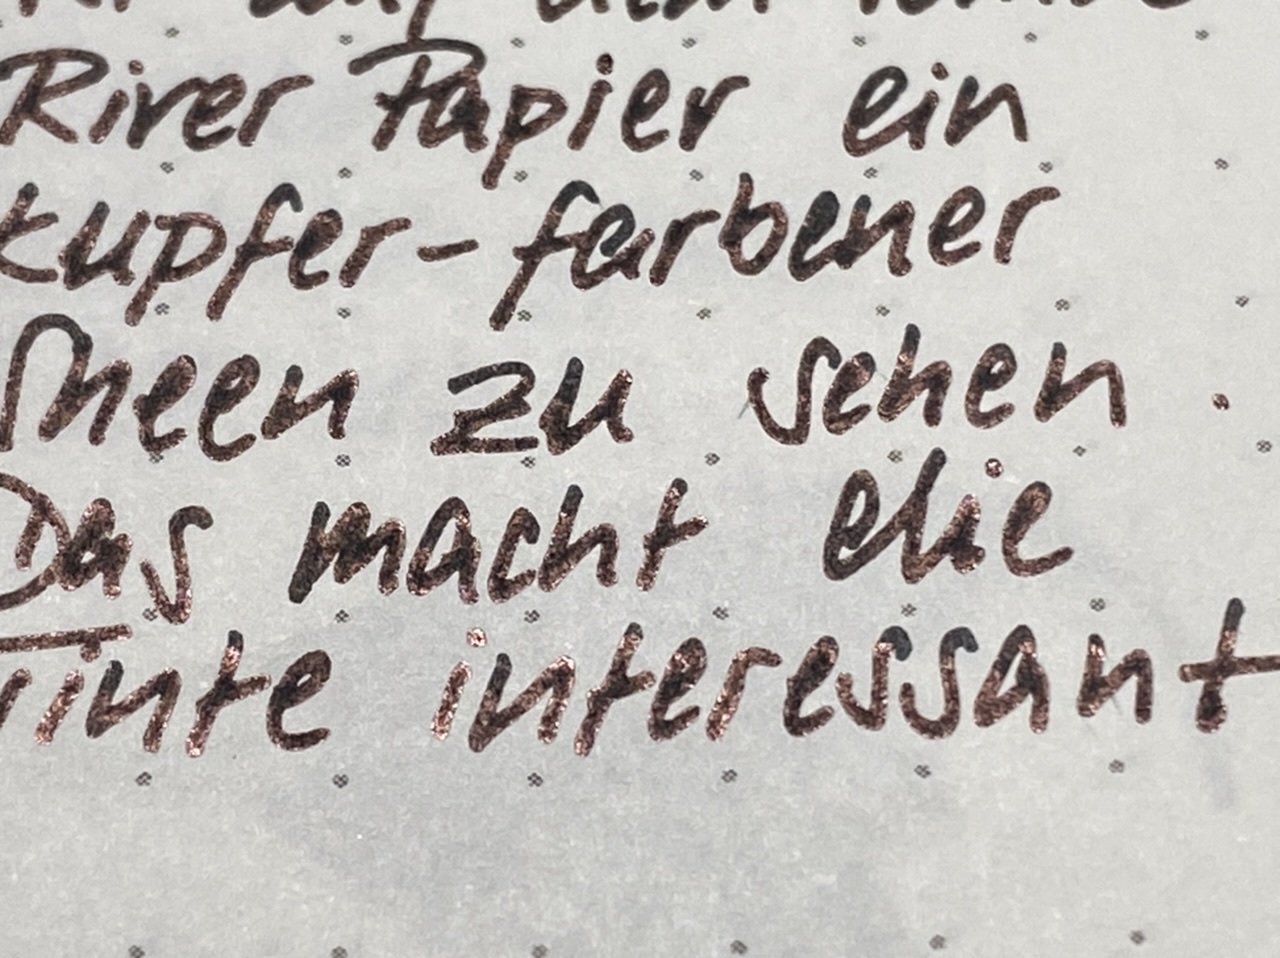 auf dem Tomoe
River Papier ein
kupfer-farbener
Sheen zu sehen.
Das macht die
Tinte interessant